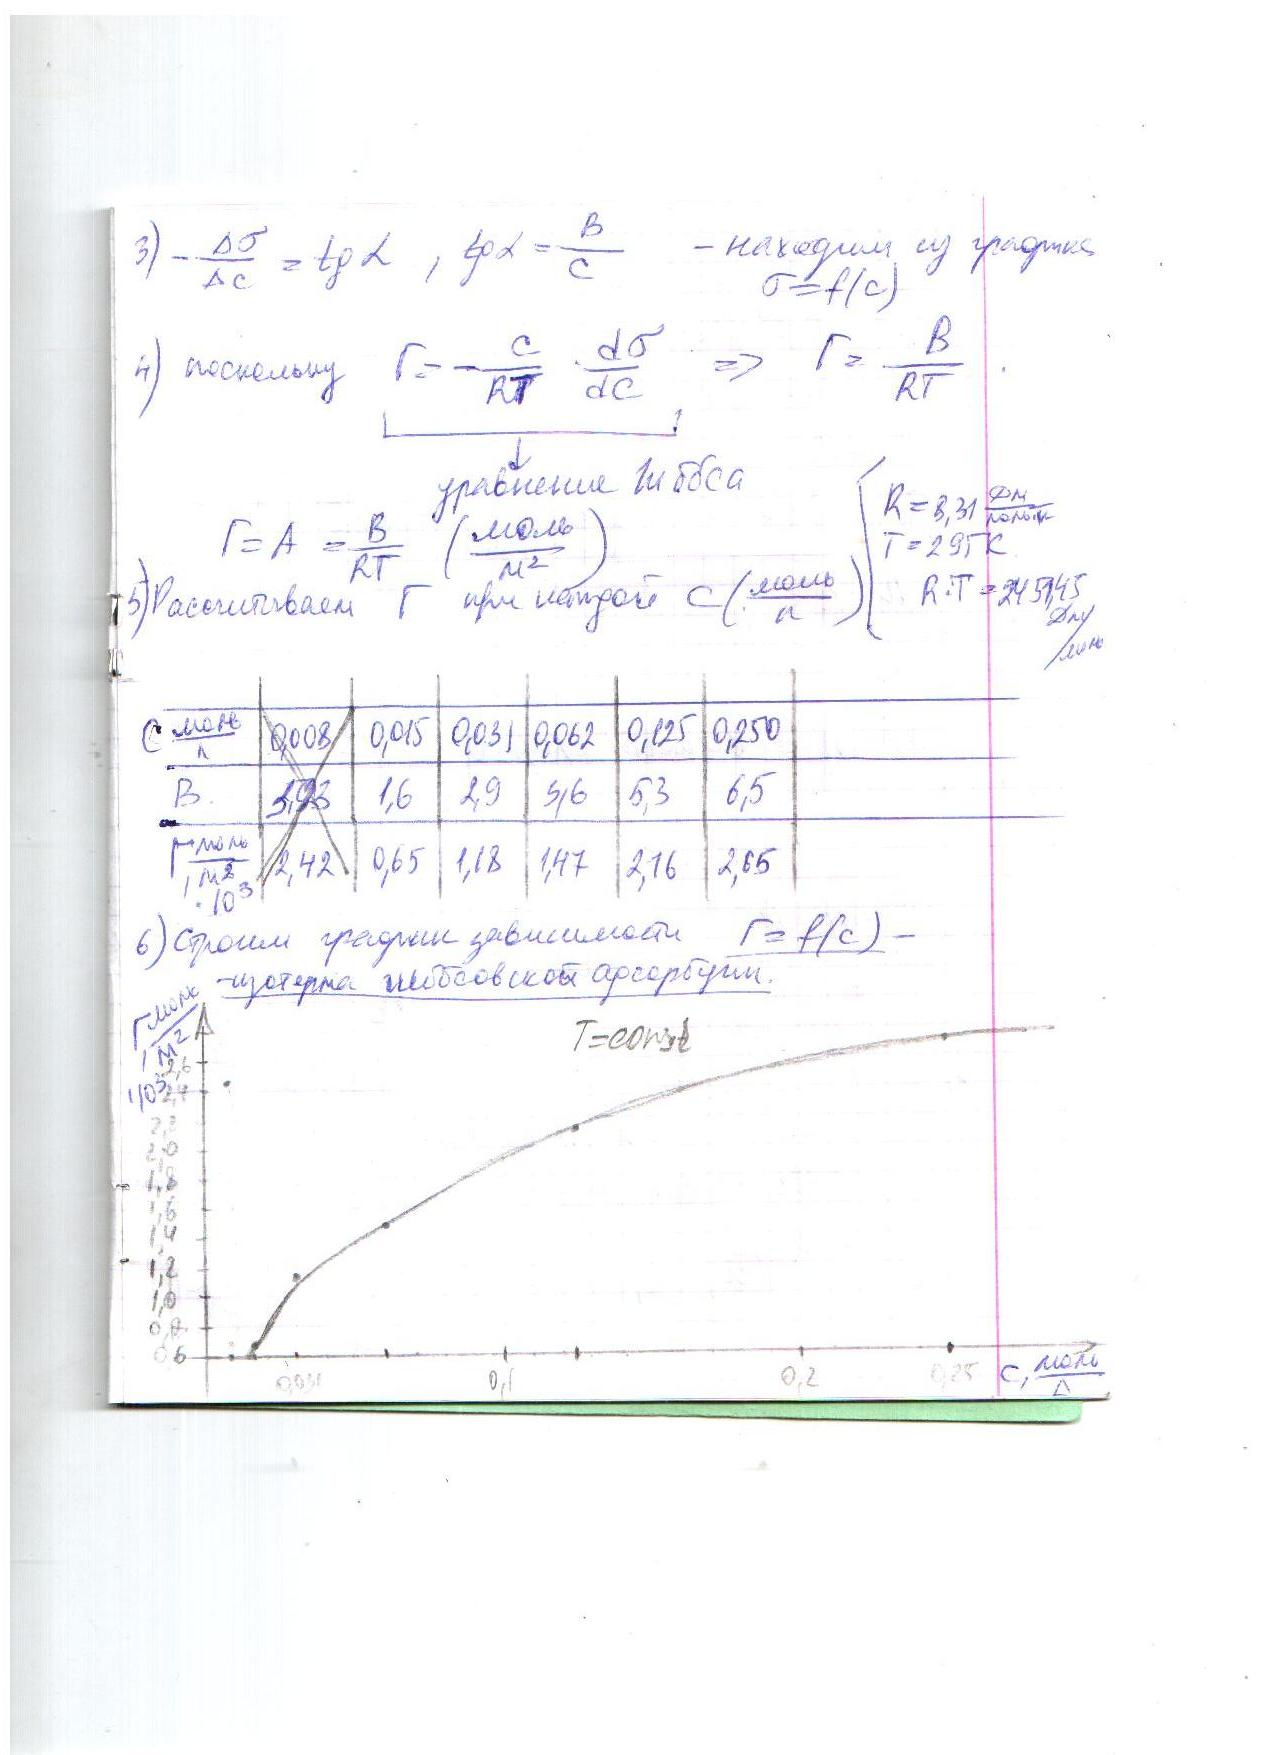 3) -Δσ/Δc = tgα , tgα = B/C - находим из графика
σ=f(c)
4) поскольку Г = - C/RT · dσ/dC => Г = B/RT .
уравнение Гиббса
Г = A = B/RT (моль/м²)
R = 8,31 Дж/моль·К
T = 295К
R·T = 2451,45 Дж/моль
5) Рассчитываем Г при каждой C (моль/л)
C моль/л 0,008 0,015 0,031 0,062 0,125 0,250
B. 1,6 2,9 3,6 5,3 6,5
Г, моль/м² ·10³ 2,42 0,65 1,18 1,47 2,16 2,65
6) Строим график зависимости Г=f(c) -
-изотерма гиббсовской адсорбции.
Г, моль/м² ·10³
T=const
2,6
2,4
2,2
2,0
1,8
1,6
1,4
1,2
1,0
0,8
0,6
0,031 0,1 0,2 0,25 C, моль/л